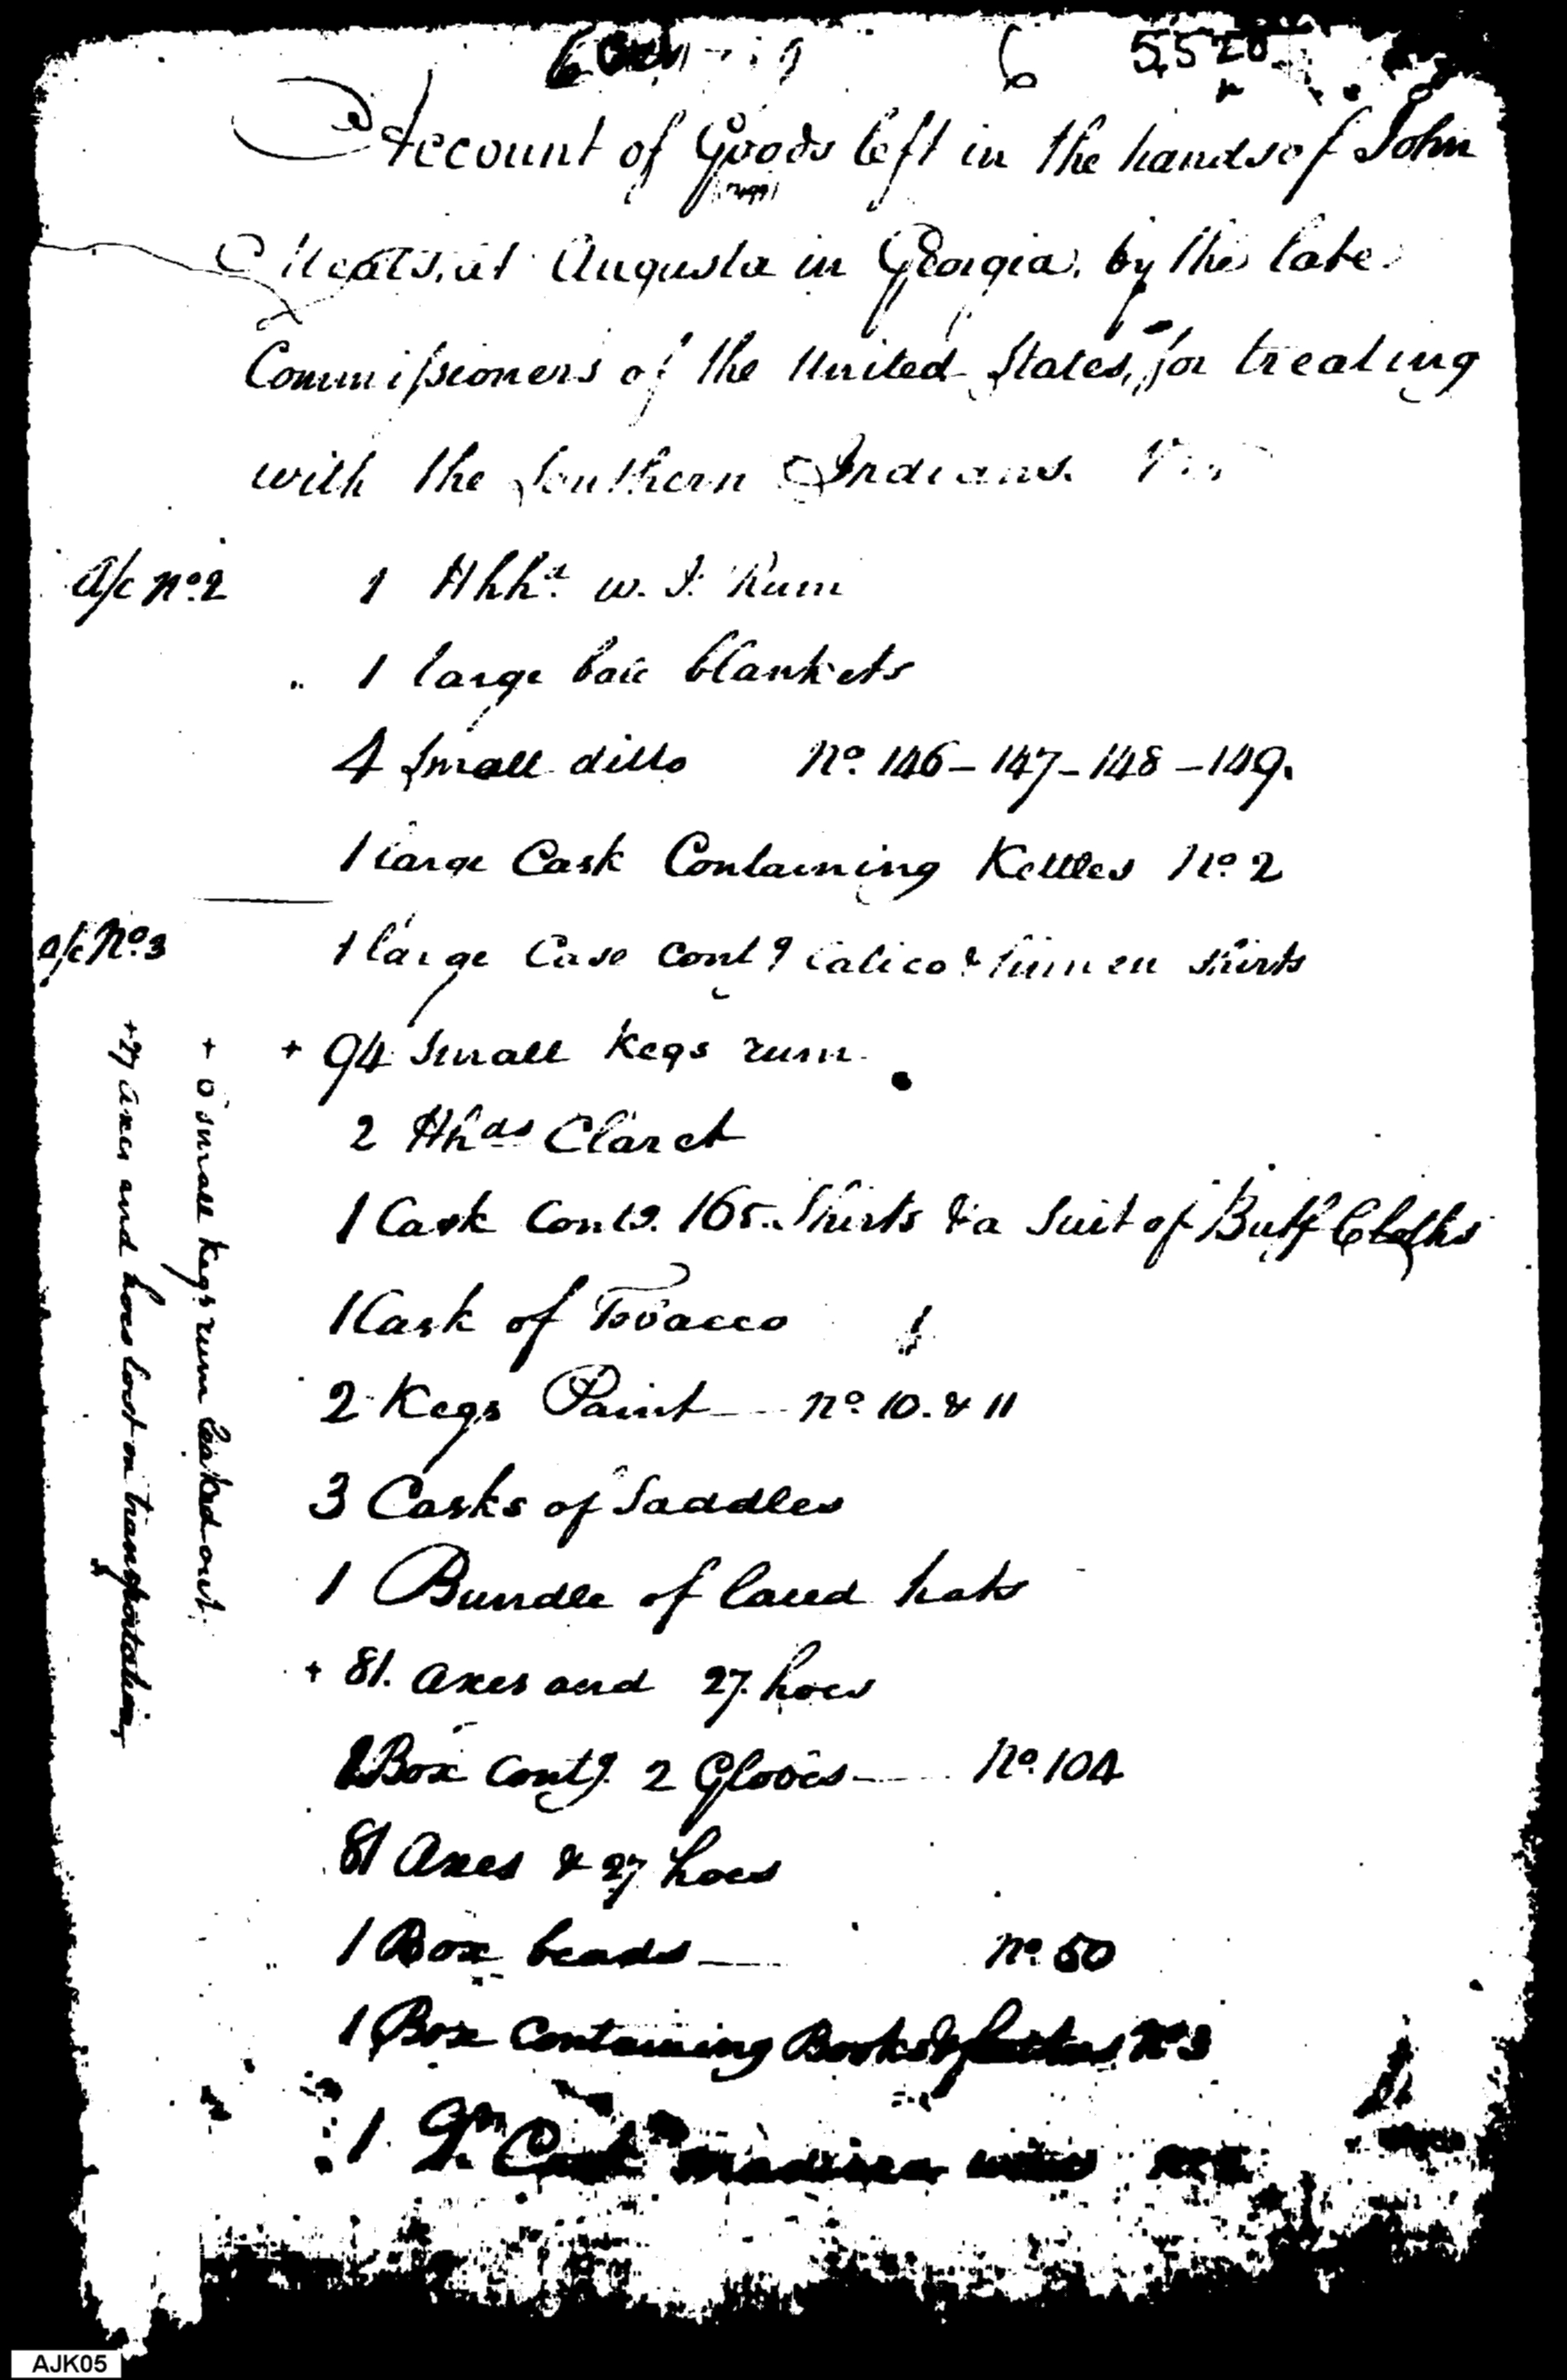 6 5520
Account of Goods left in the hands of John
Meals, at Augusta in Georgia, by the late
Commissioners of the United States, for treating
with the Southern Indians. Viz
a/c No. 2 1 Hhhd. W. I. Rum
" 1 large bale blankets
4 Small ditto No. 146 – 147 – 148 – 149.
1 large Cask Containing Kettles No. 2
a/c No. 3 1 large Case contg Calico & linnen shirts
+ 94 Small Kegs rum
2 Hhds Claret
1 Cask contg. 165. Shirts & a Suit of Buff Cloths
1 Cask of Tobacco
2 Kegs Paint — No. 10. & 11
3 Casks of Saddles
1 Bundle of laced hats
+ 81. axes and 27. hoes
Box contg. 2 Gloves — No. 104
81 Axes & 27 hoes
1 Box beads — No. 50
1 Box Containing Books & No 3
1. Qr. Cask madeira wine
+ 6 small kegs rum leaked out.
+ 27 axes and hoes lost on transportation
AJK05